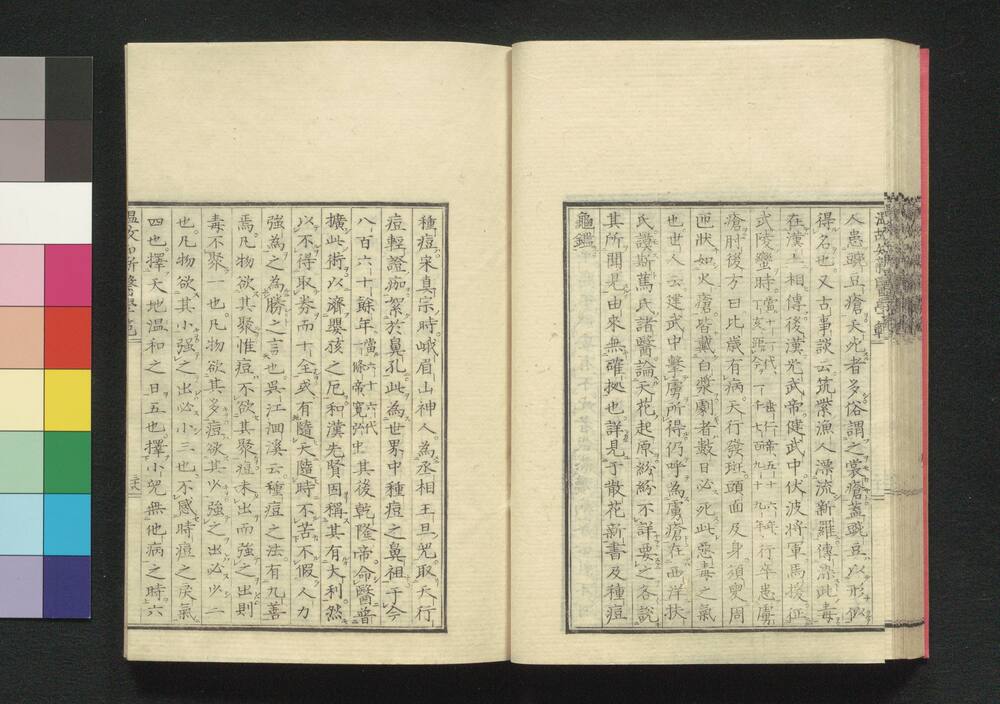 人患豌豆瘡天死者多俗謂之裳瘡蓋豌豆以形似
得名也又古事談云筑紫漁人漂流新羅傳染此毒
在漢土相傳後漢光武帝健武中伏波將軍馬援征
武陵蠻時行卒患虜
瘡肘後方曰比歳有病天行發斑頭面及身須臾周
匝狀如火瘡皆戴白漿劇者數日必死此惡毒之氣
也世人云建武中擊虜所得仍呼為虜瘡在西洋扶
氏護斯篤氏諸醫論天花起原紛紛不詳要之各說
其所聞見由來無確拠也詳見于散花新書及種痘
龜鑑
種痘宋真宗時峨眉山神人為丞相王旦兒取天行
痘輕證痂絮於鼻孔此為世界中種痘之鼻祖于今
八百六十餘年當六十六代一條帝寬弘中其後乾隆帝命醫普
擴此術以濟嬰孩之厄和漢先賢固稱其有大利然
以不得取券而十全或有隨天隨時不苦不假人力
強為之為勝之言也吳江洄溪云種痘之法有九善
焉凡物欲其聚惟痘不欲其聚痘未出而強之出則
毒不聚一也凡物欲其多痘欲其少強之出必少二
也凡物欲其小强之出必小三也不感時痘之戾氣
四也擇天地温和之日五也擇小兒無他病之時六
温故知新醫學範